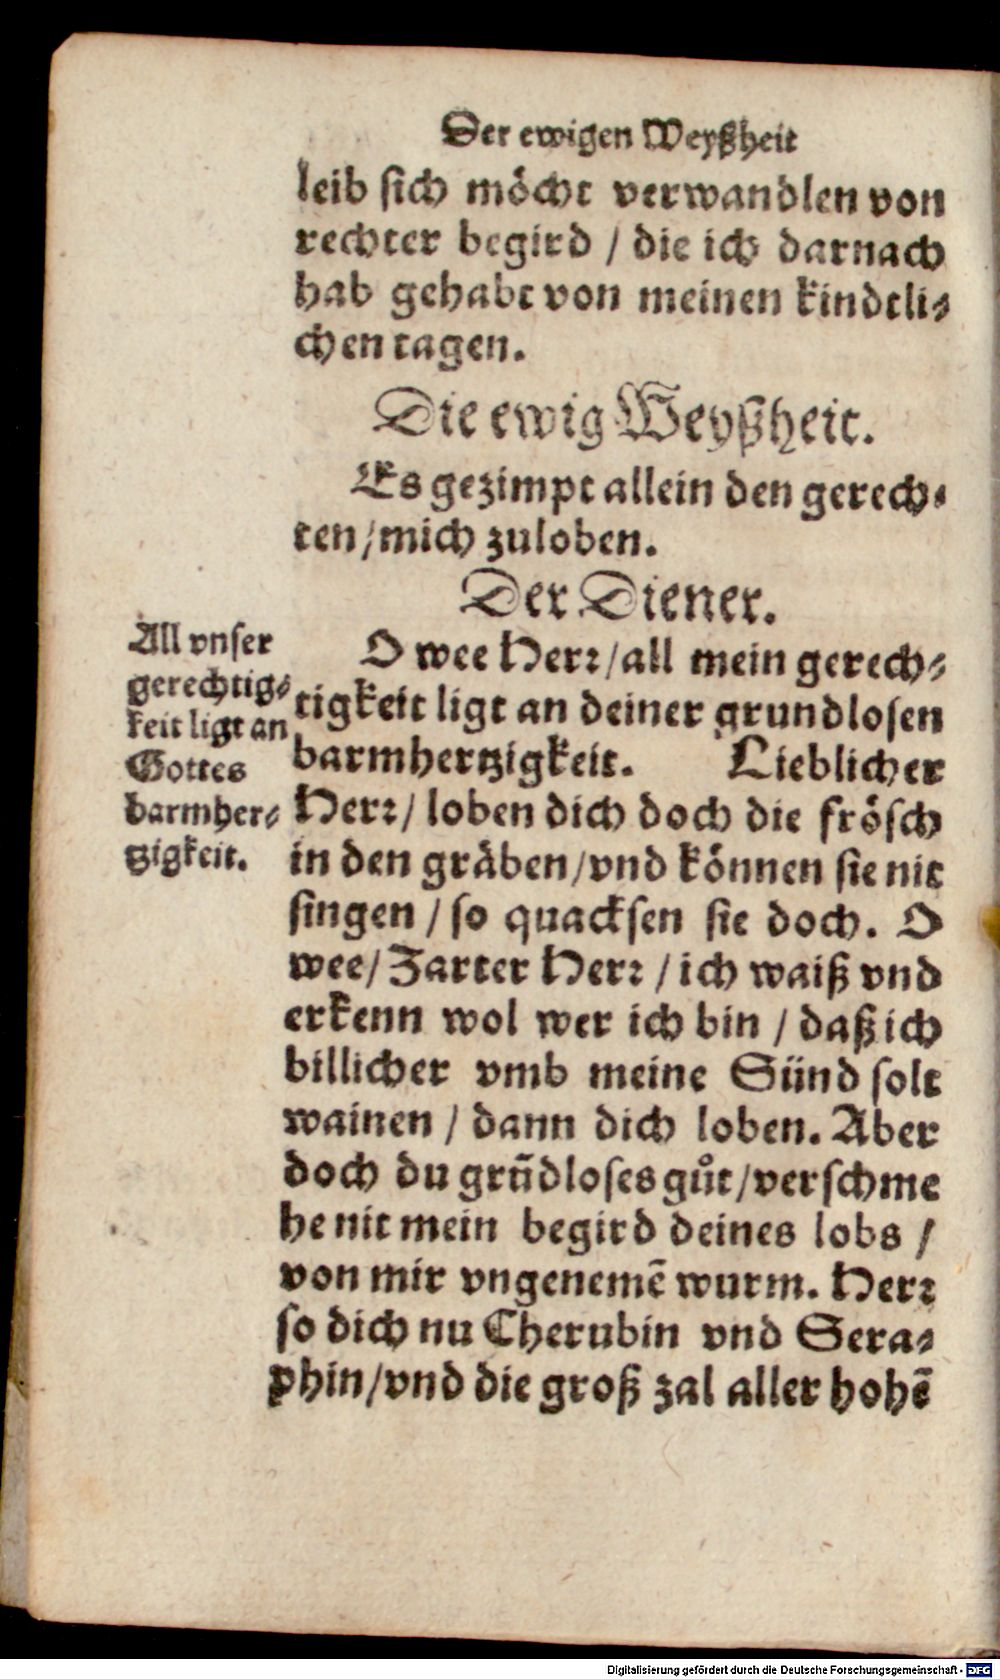 Der ewigen Weyßheit
leib sich möcht verwandlen von
rechter begird / die ich darnach
hab gehabt von meinen kindtli⸗
chen tagen.
Die ewig Weyßheit.
Es gezimpt allein den gerech⸗
ten / mich zuloben.
Der Diener.
O wee Herꝛ / all mein gerech⸗
tigkeit ligt an deiner grundlosen
barmhertzigkeit. Lieblicher
Herꝛ / loben dich doch die frösch
in den gräben / vnd können sie nit
singen / so quacksen sie doch. O
wee / Zarter Herꝛ / ich waiß vnd
erkenn wol wer ich bin / daß ich
billicher vmb meine Sünd solt
wainen / dann dich loben. Aber
doch du grūdloses gůt / verschme
he nit mein begird deines lobs /
von mir vngenemē wurm. Herꝛ
so dich nu Cherubin vnd Sera⸗
phin / vnd die groß zal aller hohē
All vnser
gerechtig⸗
keit ligt an
Gottes
barmher⸗
tzigkeit.
Digitalisierung gefördert durch die Deutsche Forschungsgemeinschaft - DFG